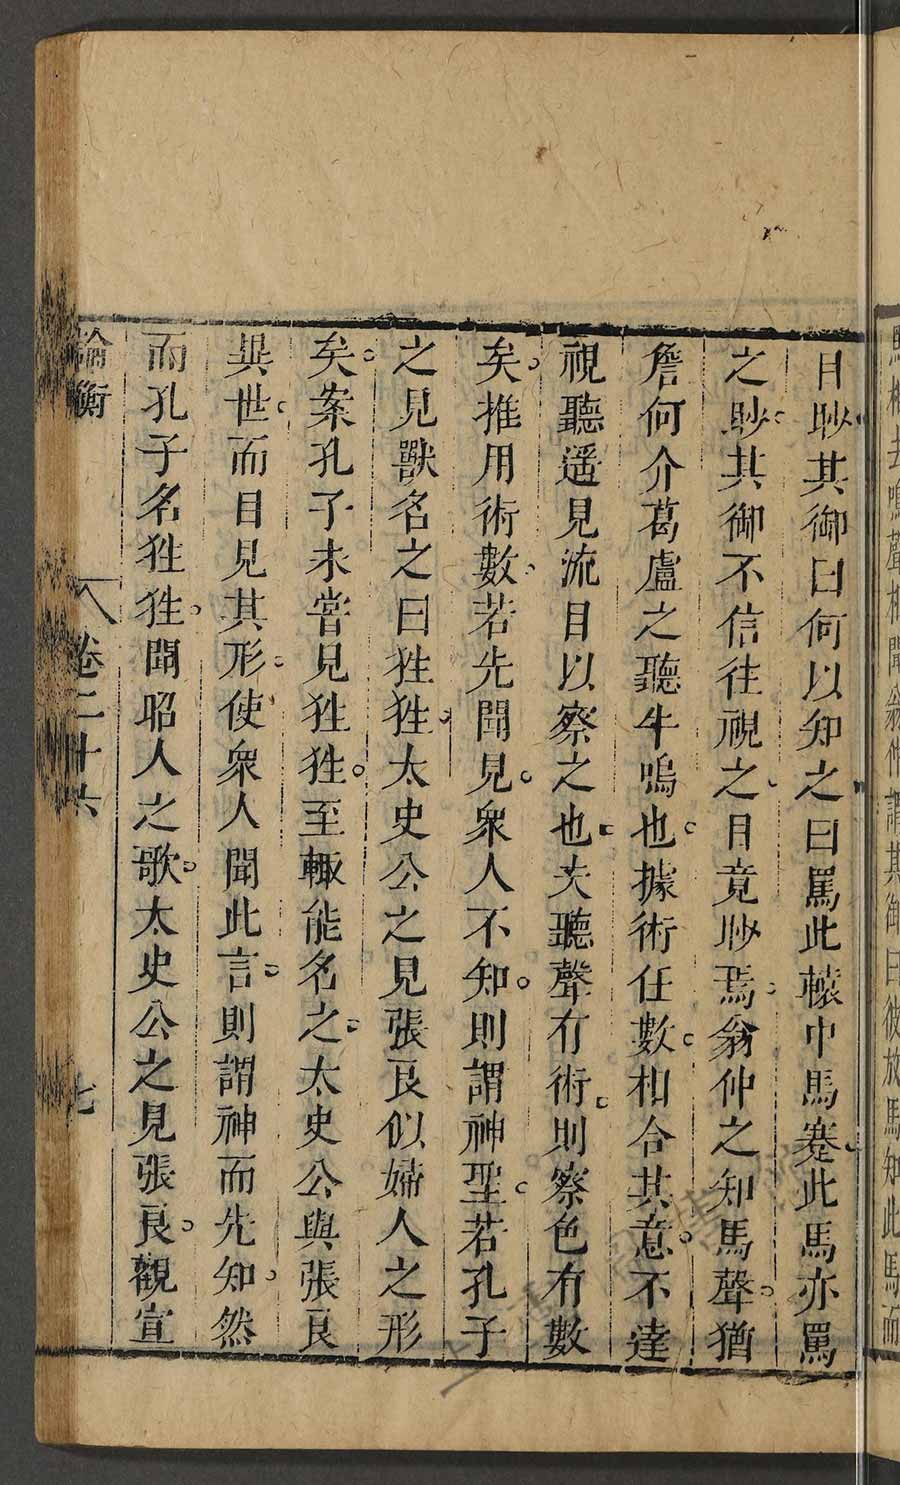 目眇其御曰何以知之曰罵此轅中馬蹇此馬亦罵
之眇其御不信往視之目竟眇焉翁仲之知馬聲猶
詹何介葛盧之聽牛鳴也據術任數相合其意不達
視聽遥見流目以察之也夫聽聲有術則察色有數
矣推用術數若先聞見衆人不知則謂神聖若孔子
之見獸名之曰狌狌太史公之見張良似婦人之形
矣案孔子未嘗見狌狌至輒能名之太史公與張良
異世而目見其形使衆人聞此言則謂神而先知然
而孔子名狌狌聞昭人之歌太史公之見張良觀宣
論衡 卷二十六 七